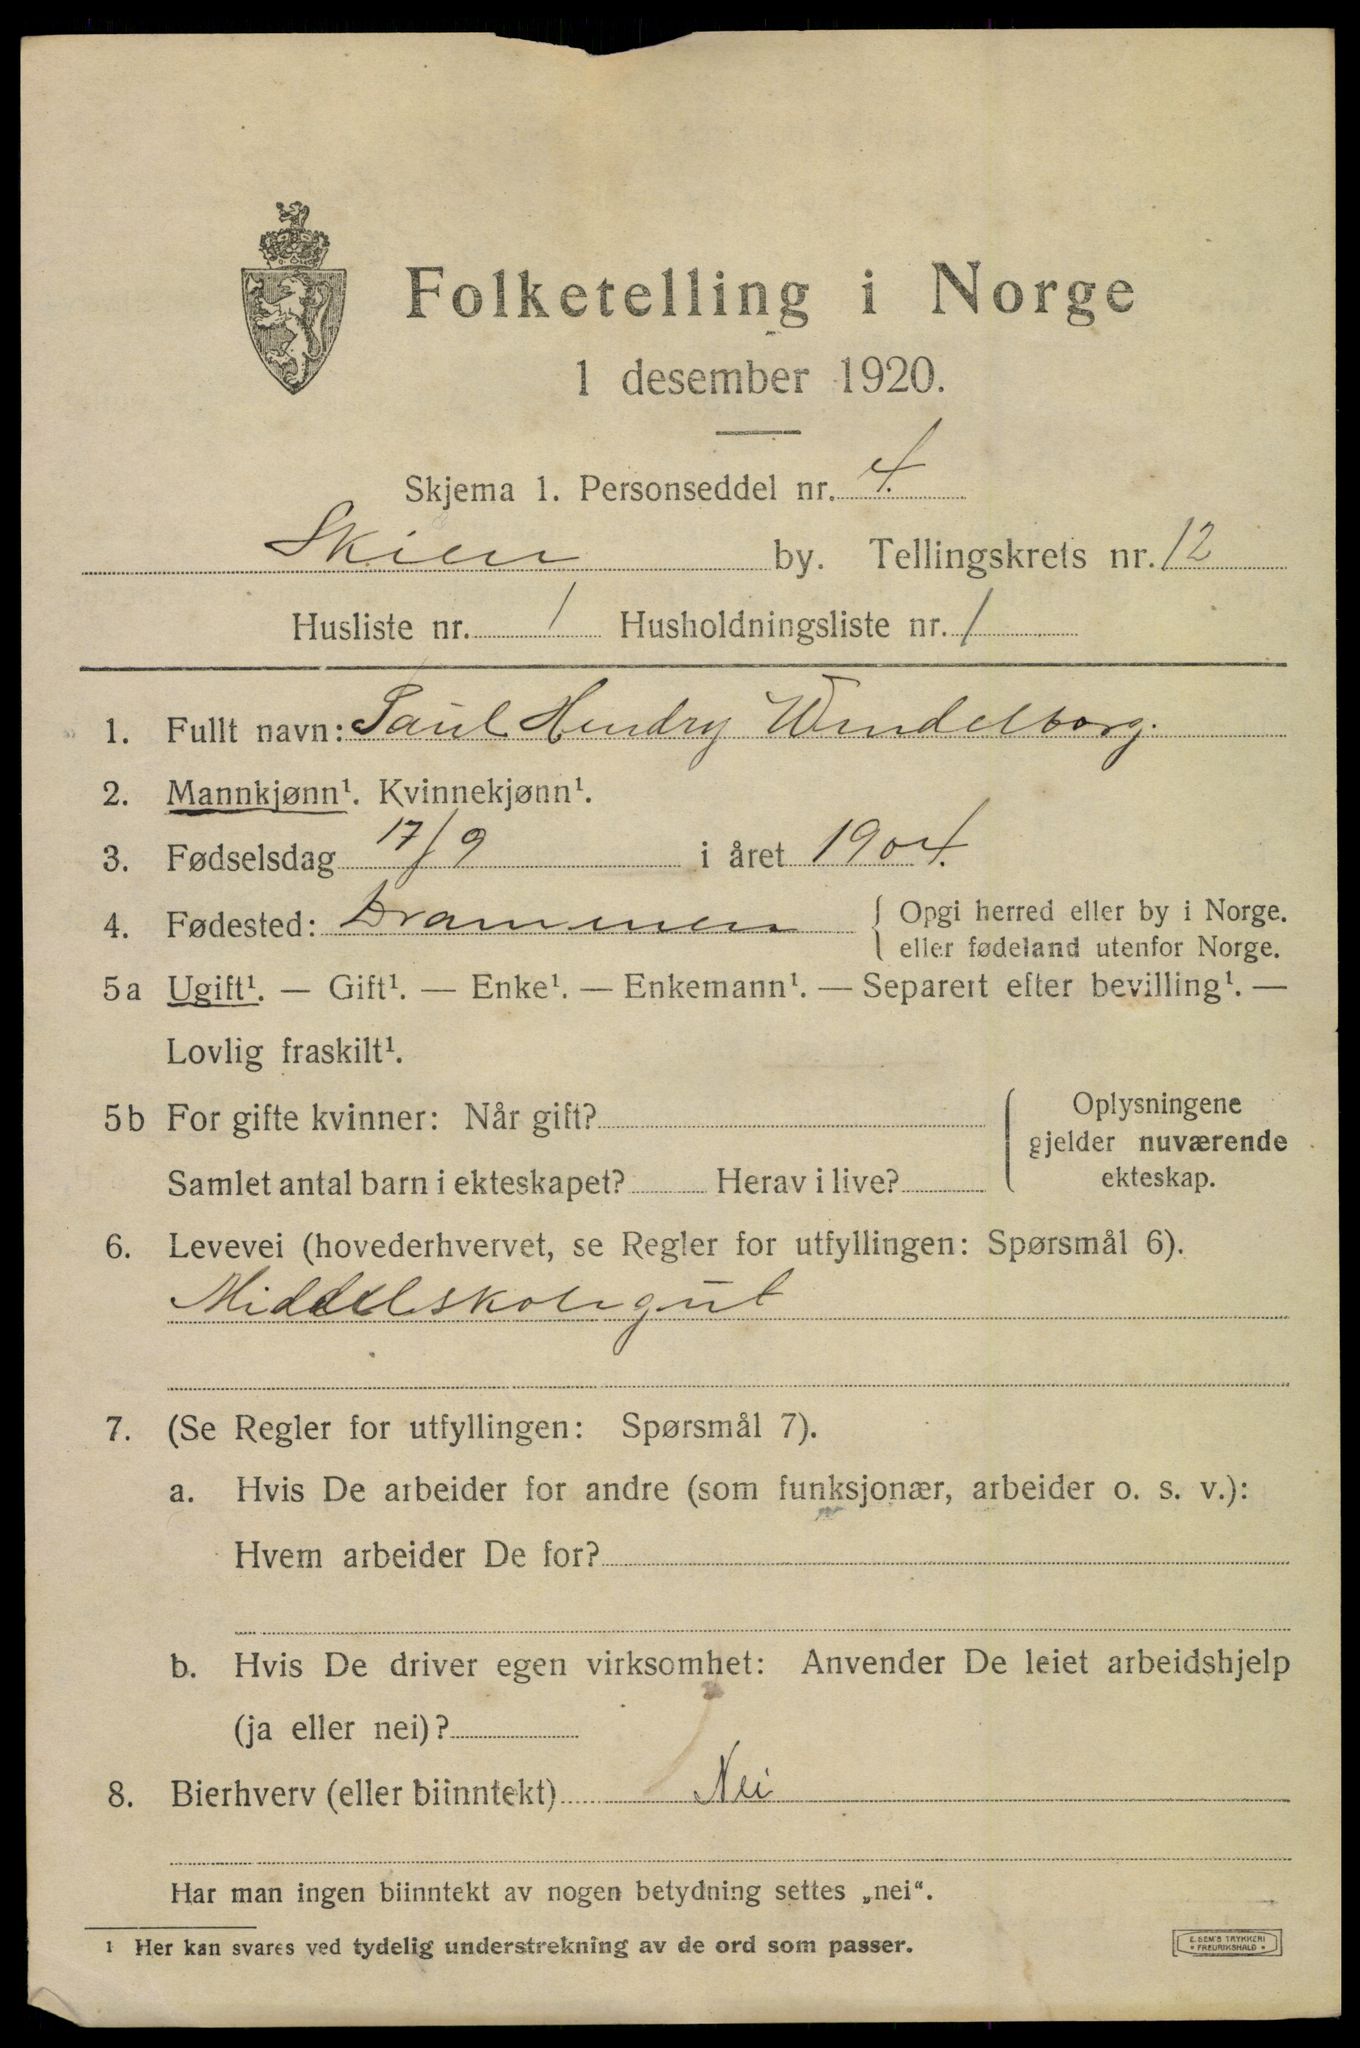 Folketelling i Norge
1 desember 1920.
Skjema 1. Personseddel nr. 4.
Skien by. Tellingskrets nr. 12
Husliste nr. 1 Husholdningsliste nr. 1
1. Fullt navn: Paul Hendry Wendelborg.
2. Mannkjønn¹. Kvinnekjønn¹.
3. Fødselsdag 17/9 i året 1904.
4. Fødested: Drammen { Opgi herred eller by i Norge.
eller fødeland utenfor Norge.
5a Ugift¹. — Gift¹. — Enke¹. — Enkemann¹. — Separert efter bevilling¹. —
Lovlig fraskilt¹.
5b For gifte kvinner: Når gift?
Samlet antal barn i ekteskapet? Herav i live?
Oplysningene
gjelder nuværende
ekteskap.
6. Levevei (hovederhvervet, se Regler for utfyllingen: Spørsmål 6).
Middelskolegut
7. (Se Regler for utfyllingen: Spørsmål 7).
a. Hvis De arbeider for andre (som funksjonær, arbeider o. s. v.):
Hvem arbeider De for?
b. Hvis De driver egen virksomhet: Anvender De leiet arbeidshjelp
(ja eller nei)?
8. Bierhverv (eller biinntekt) Nei
Har man ingen biinntekt av nogen betydning settes „nei“.
¹ Her kan svares ved tydelig understrekning av de ord som passer.
E. SEM'S TRYKKERI
* FREDRIKSHALD *